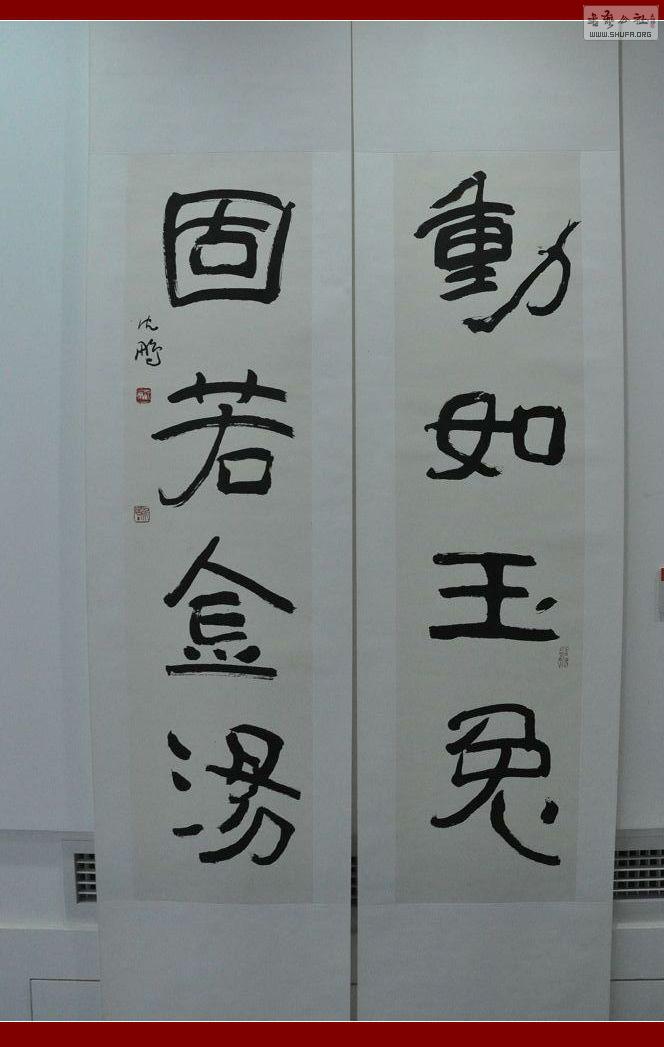 動如玉兔
固若金湯
沈鵬
书法公社
WWW.SHUFA.ORG